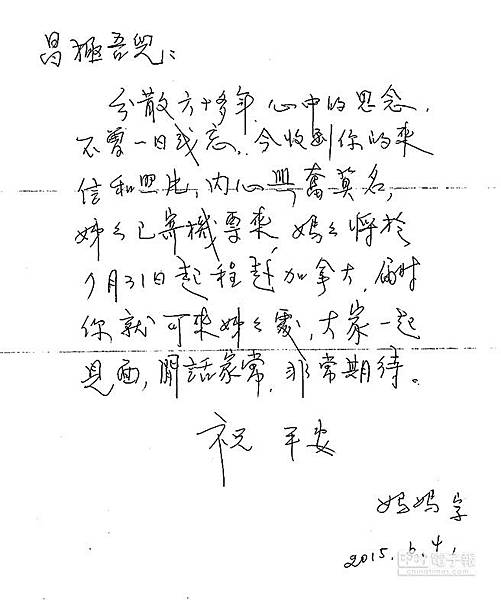 昌極吾兒：
分散六十多年，心中的思念，
不曾一日或忘，今收到你的來
信和照片，內心興奮莫名，
姊々已寄機票來，媽々將於
7月31日起程赴加拿大，屆时
你就可來姊々處，大家一起
見面，閒話家常，非常期待。
祝 平安
媽媽字
2015.6.4.
中時電子報
chinatimes.com